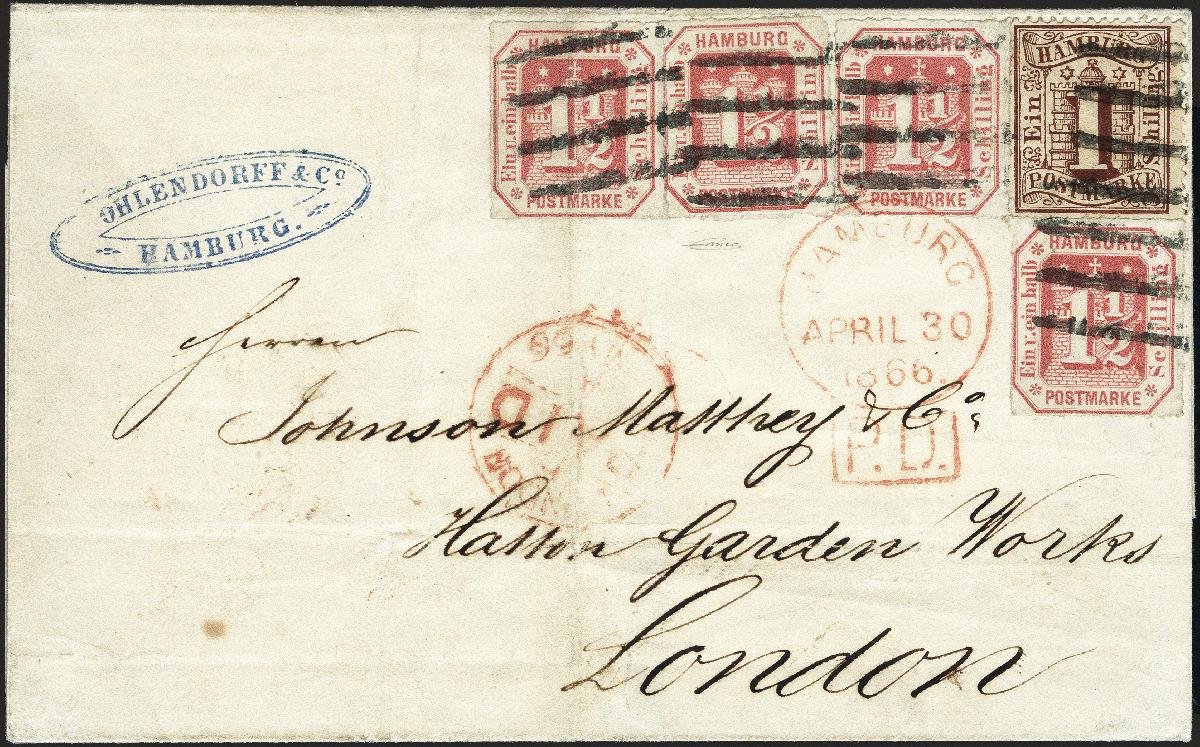 HAMBURG
Ein u. ein halb
1 1/2
Schilling
POSTMARKE
HAMBURG
1 1/2
Schilling
POSTMARKE
HAMBURG
Ein u. ein halb
1 1/2
Schilling
POSTMARKE
HAMBURG
Ein
1
Schilling
POSTMARKE
HAMBURG
Ein u. ein halb
1 1/2
Schilling
POSTMARKE
OHLENDORFF & Co
HAMBURG.
HAMBURG
APRIL 30
1866.
P.D.
Herren
Johnson Matthey & Co
Hatton Garden Works
London